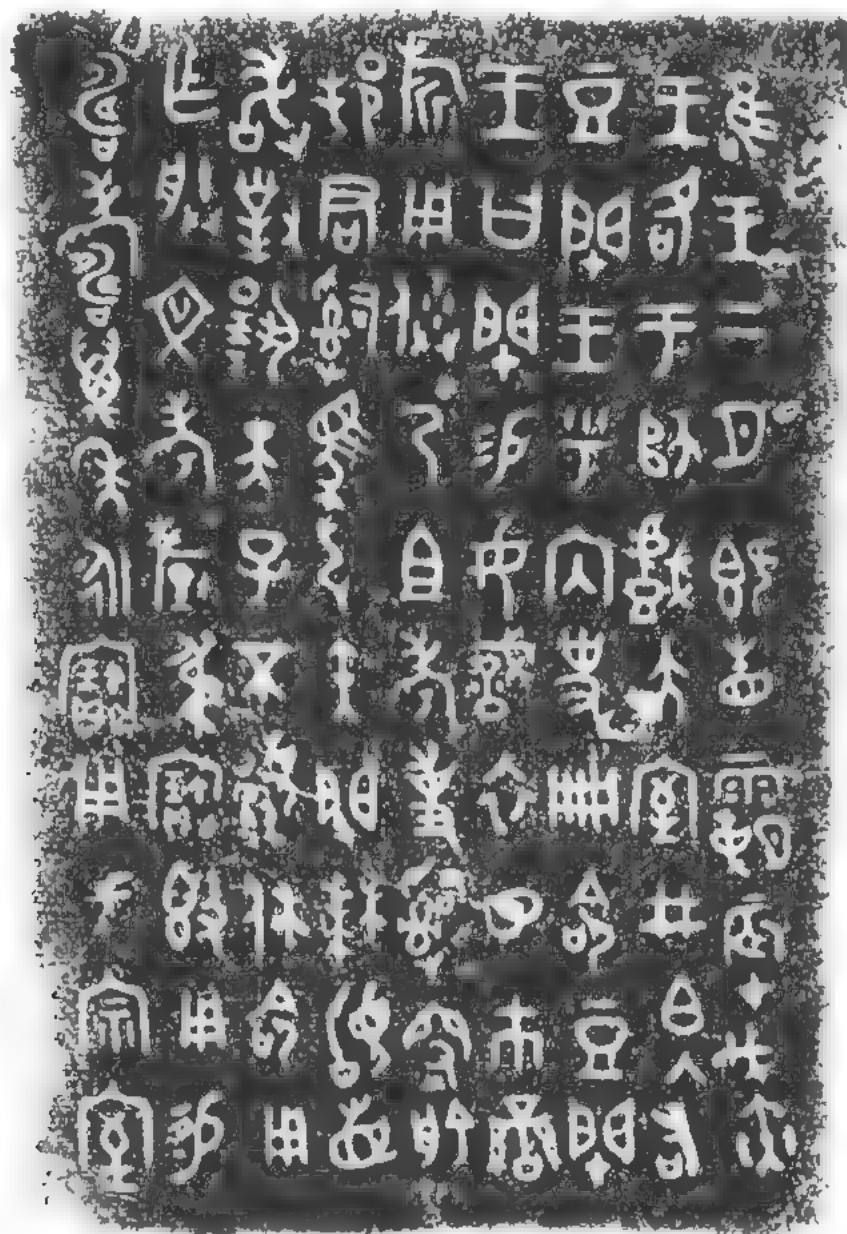 唯王二月既眚霸辰才戊寅
王各于師戲大室井白入右
豆閉王乎內史冊命豆閉
王曰閉易女戠衣𢂇巿䜌旂
用𠈪乃且考事𤔲窽俞
邦君𤔲馬弓矢閉拜𩒨
首敢對揚天子不顯休命用
乍朕文考釐弔寶簋用
易𠷎壽萬年永寶用于宗室